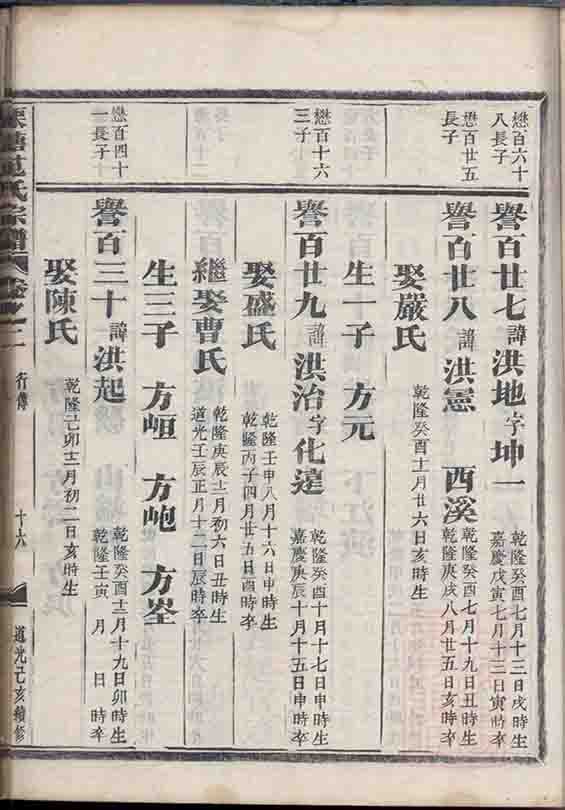 懋百六十
八長子
譽百廿七諱洪地字坤一
乾隆癸酉七月十三日戌時生
嘉慶戊寅七月十三日寅時卒
懋百廿五
長子
譽百廿八諱洪憲 西溪
乾隆癸酉七月十九日丑時生
乾隆庚戌八月廿五日亥時卒
娶嚴氏
乾隆癸酉十一月廿六日亥時生
生一子 方元
懋百十六
三子
譽百廿九諱洪治字化達
乾隆癸酉十月十七日申時生
嘉慶庚辰十月十五日申時卒
娶盛氏
乾隆壬申八月十六日申時生
乾隆丙子四月廿五日酉時卒
繼娶曹氏
乾隆庚辰十二月初六日丑時生
道光壬辰正月十二日辰時卒
生三子 方峘 方𡶇 方峑
懋百四十
一長子
譽百三十諱洪起
乾隆癸酉十二月十九日卯時生
乾隆壬寅 月 日 時卒
娶陳氏
乾隆己卯十二月初二日亥時生
范氏宗譜 卷之二
行傳
十六
道光己亥續修